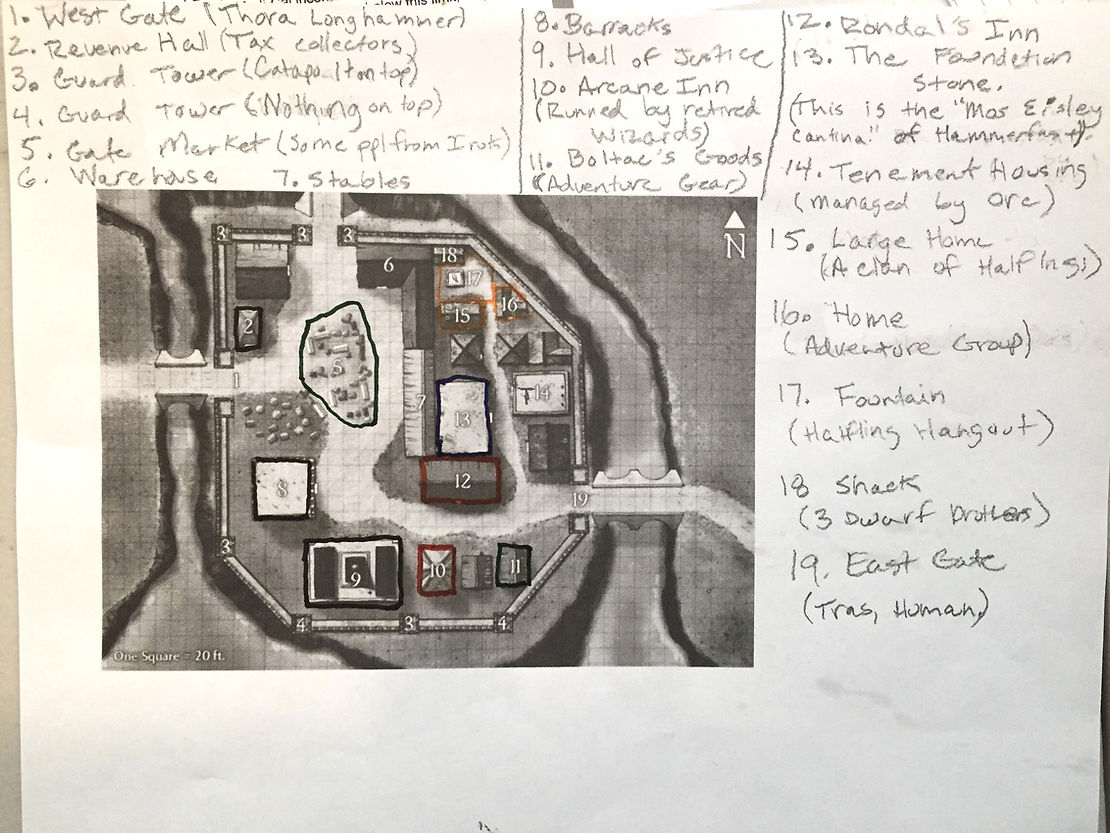 below this lim
1. West Gate (Thora Longhammer)
2. Revenue Hall (Tax collectors)
3. Guard Tower (Catapault on top)
4. Guard Tower (Nothing on top)
5. Gate Market (Some ppl from Iroth)
6. Warehouse 7. Stables
8. Barracks
9. Hall of Justice
10. Arcane Inn
(Runned by retired
Wizards)
11. Boltac's Goods
(Adventure Gear)
12. Rondal's Inn
13. The Foundation
Stone.
(This is the "Mos Eisley
Cantina" of Hammerfast)
14. Tenement Housing
(managed by Orc)
15. Large Home
(A clan of Halflings)
16. Home
(Adventure Group)
17. Fountain
(Halfling Hangout)
18 Shack
(3 Dwarf Brothers)
19. East Gate
(Tras, Human)
N
3 3 3
6 18
17
16
2 15
5
1
14
7 13
8 12
19
3
9 10 11
4 3 4
One Square = 20 ft.